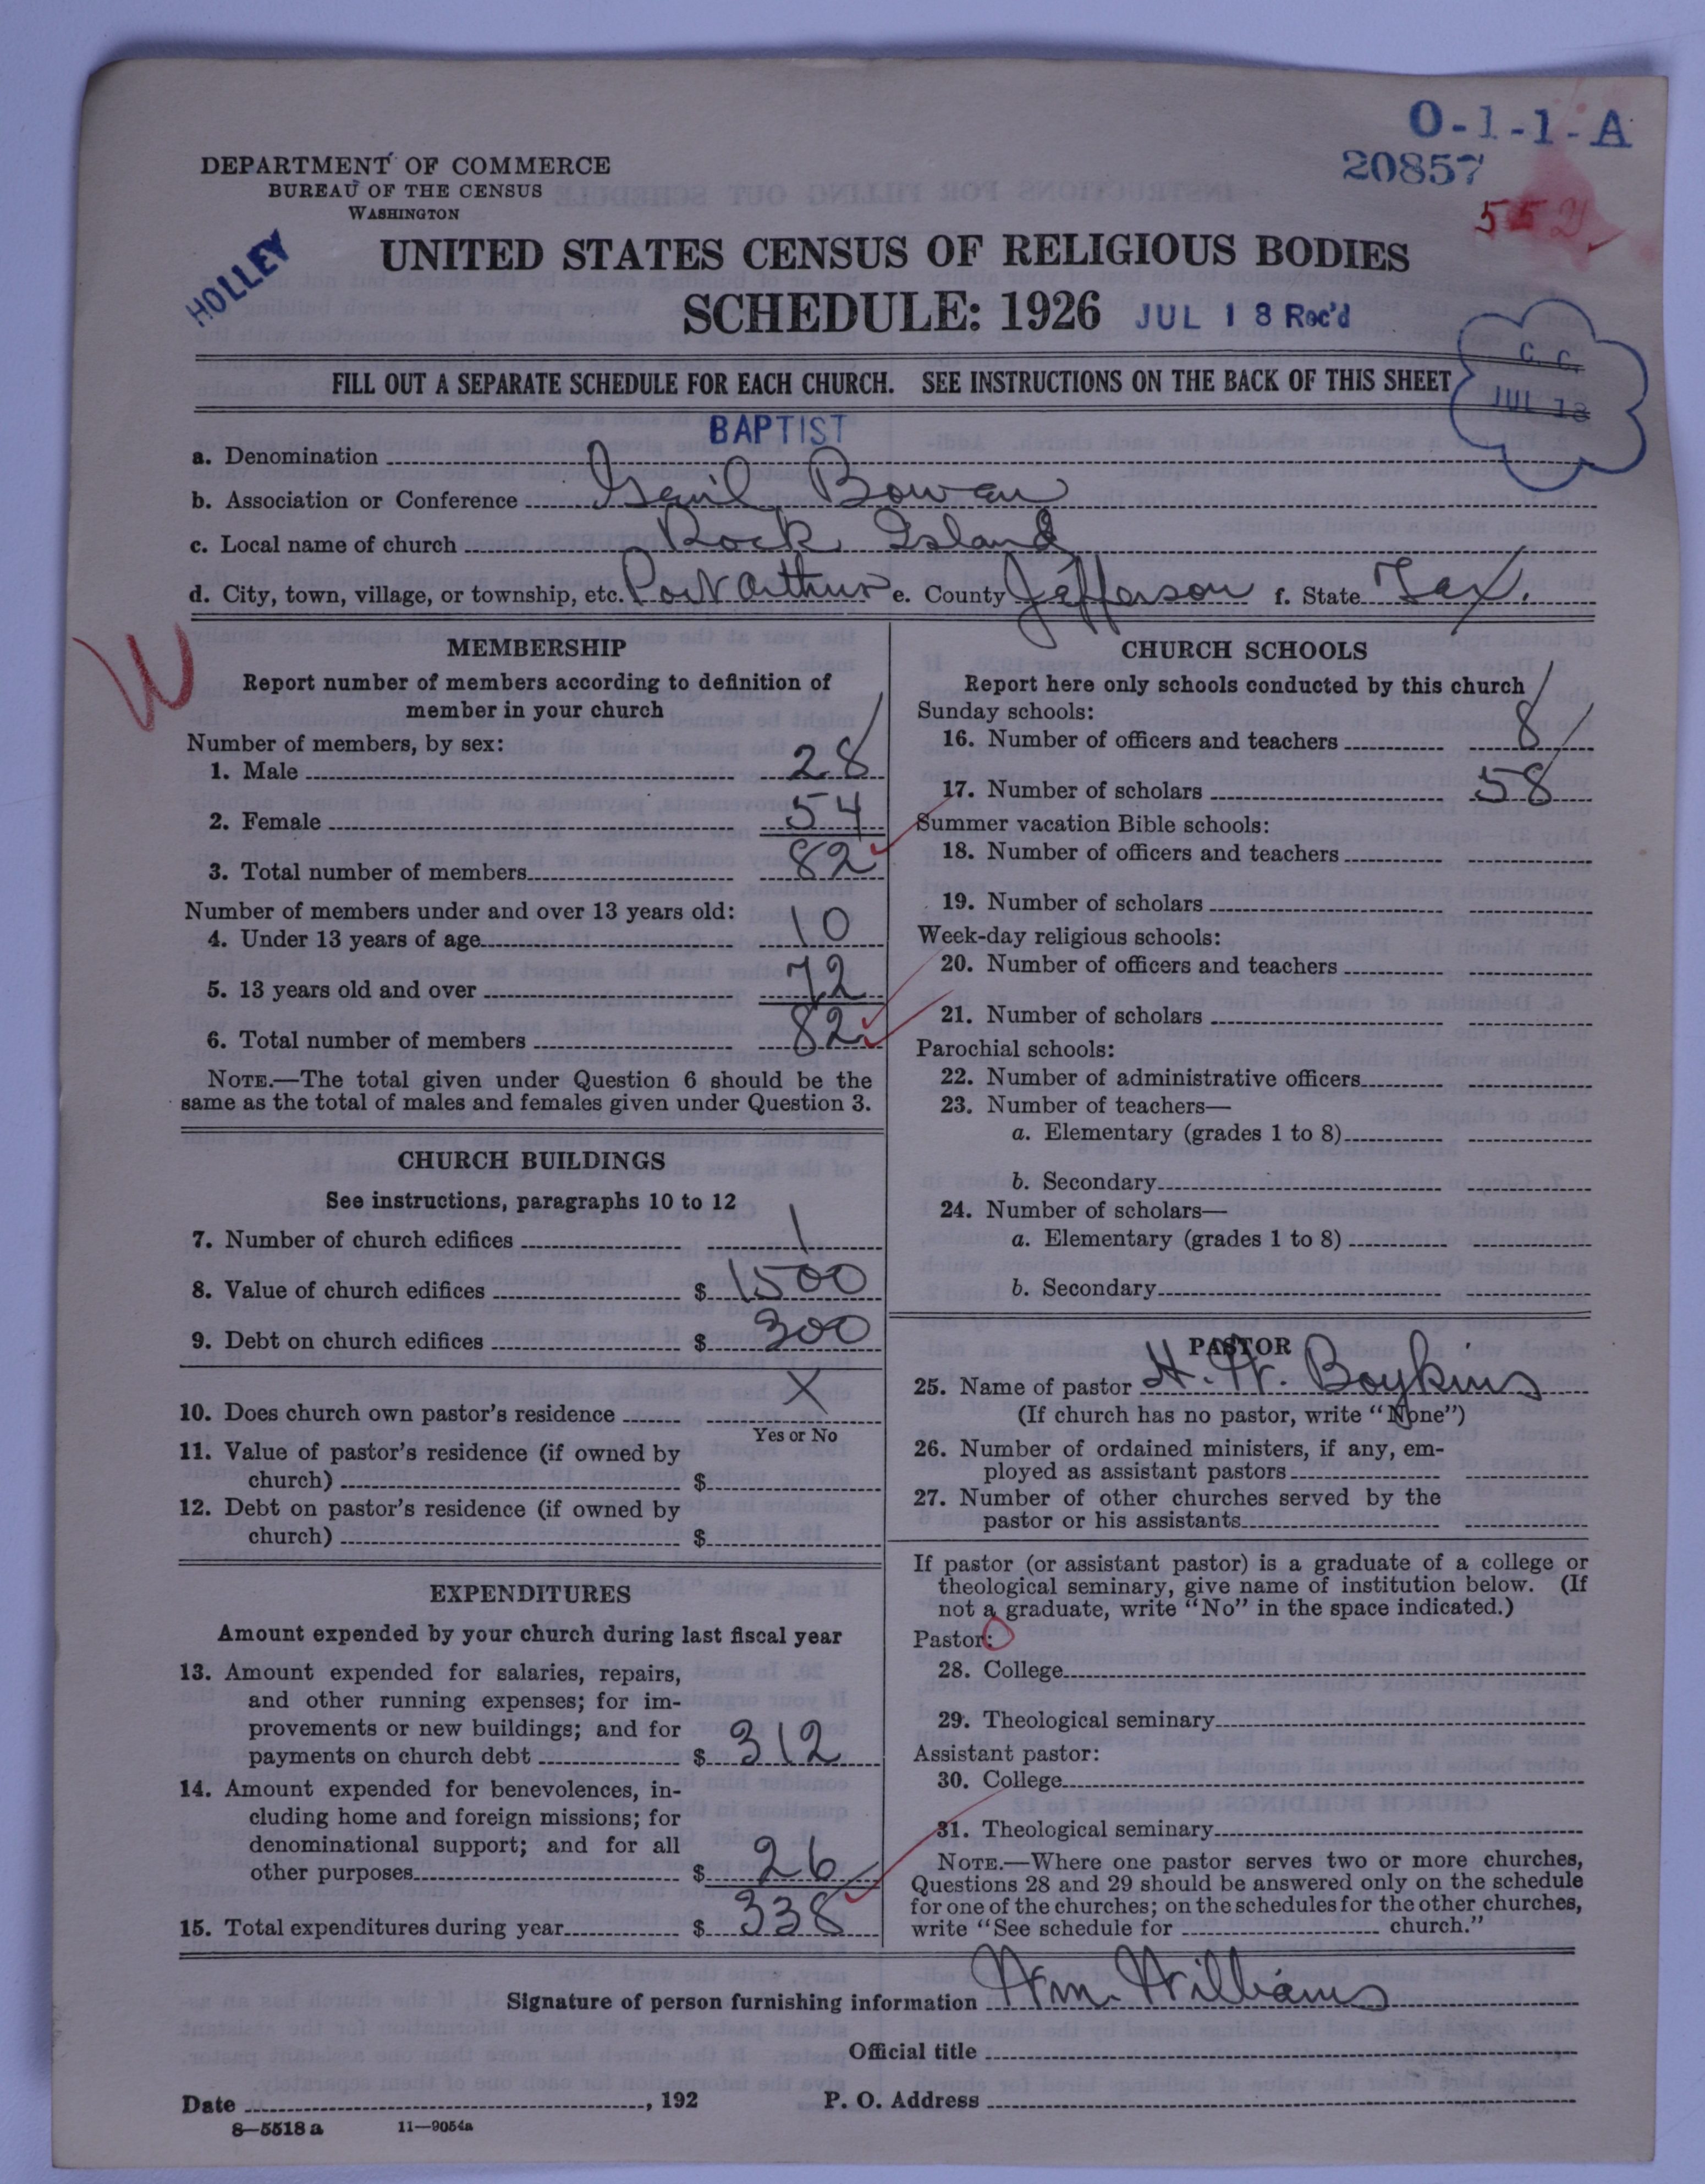 O-1-1-A
20857
DEPARTMENT OF COMMERCE
BUREAU OF THE CENSUS
WASHINGTON
HOLLEY
UNITED STATES CENSUS OF RELIGIOUS BODIES
SCHEDULE: 1926 JUL 18 Rec'd
C. C.
JUL 18
FILL OUT A SEPARATE SCHEDULE FOR EACH CHURCH. SEE INSTRUCTIONS ON THE BACK OF THIS SHEET
a. Denomination BAPTIST
b. Association or Conference Bowen
c. Local name of church Rock Island
d. City, town, village, or township, etc. Port Arthur e. County Jefferson f. State Tex.
W
MEMBERSHIP
Report number of members according to definition of
member in your church
Number of members, by sex:
1. Male 28
2. Female 54
3. Total number of members 82
Number of members under and over 13 years old:
4. Under 13 years of age 10
5. 13 years old and over 72
6. Total number of members 82
NOTE.—The total given under Question 6 should be the
same as the total of males and females given under Question 3.
CHURCH BUILDINGS
See instructions, paragraphs 10 to 12
7. Number of church edifices 1
8. Value of church edifices $ 1500
9. Debt on church edifices $ 300
10. Does church own pastor's residence X
Yes or No
11. Value of pastor's residence (if owned by
church) $
12. Debt on pastor's residence (if owned by
church) $
EXPENDITURES
Amount expended by your church during last fiscal year
13. Amount expended for salaries, repairs,
and other running expenses; for im-
provements or new buildings; and for
payments on church debt $ 312
14. Amount expended for benevolences, in-
cluding home and foreign missions; for
denominational support; and for all
other purposes $ 26
15. Total expenditures during year $ 338
CHURCH SCHOOLS
Report here only schools conducted by this church
Sunday schools:
16. Number of officers and teachers 8
17. Number of scholars 58
Summer vacation Bible schools:
18. Number of officers and teachers
19. Number of scholars
Week-day religious schools:
20. Number of officers and teachers
21. Number of scholars
Parochial schools:
22. Number of administrative officers
23. Number of teachers—
a. Elementary (grades 1 to 8)
b. Secondary
24. Number of scholars—
a. Elementary (grades 1 to 8)
b. Secondary
PASTOR
25. Name of pastor H. W. Boykins
(If church has no pastor, write "None")
26. Number of ordained ministers, if any, em-
ployed as assistant pastors
27. Number of other churches served by the
pastor or his assistants
If pastor (or assistant pastor) is a graduate of a college or
theological seminary, give name of institution below. (If
not a graduate, write "No" in the space indicated.)
Pastor:
28. College
29. Theological seminary
Assistant pastor:
30. College
31. Theological seminary
NOTE.—Where one pastor serves two or more churches,
Questions 28 and 29 should be answered only on the schedule
for one of the churches; on the schedules for the other churches,
write "See schedule for church."
Signature of person furnishing information Wm. Williams
Official title
Date , 192 P. O. Address
8—5518 a 11—9054a